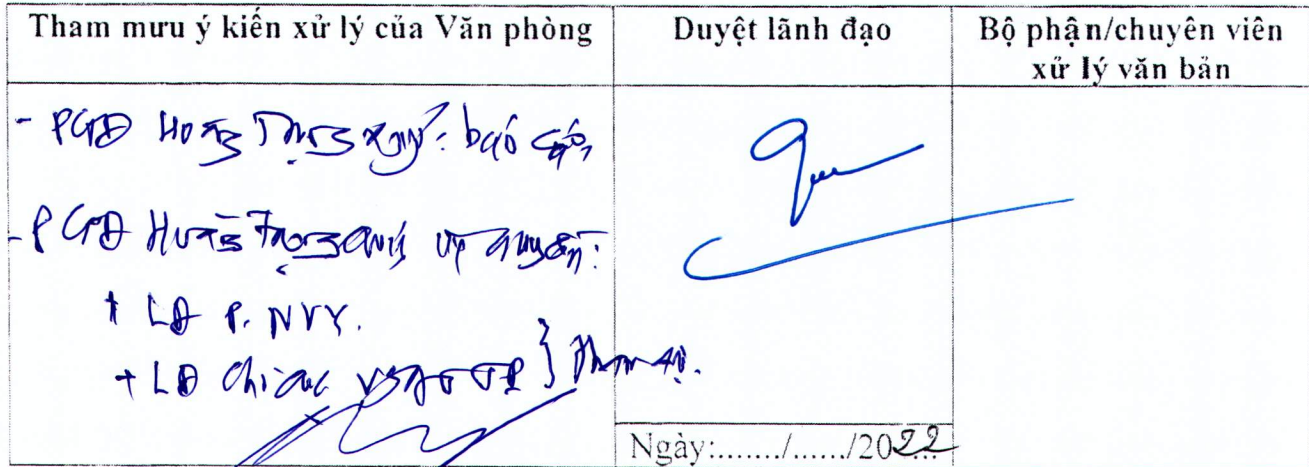 Tham mưu ý kiến xử lý của Văn phòng
Duyệt lãnh đạo
Bộ phận/chuyên viên
xử lý văn bản
- PGĐ báo cáo,
- PGĐ uỷ quyền:
+ LĐ P. NVY.
+ LĐ Chi cục VSATTP } tham dự.
Ngày:......../....../2022